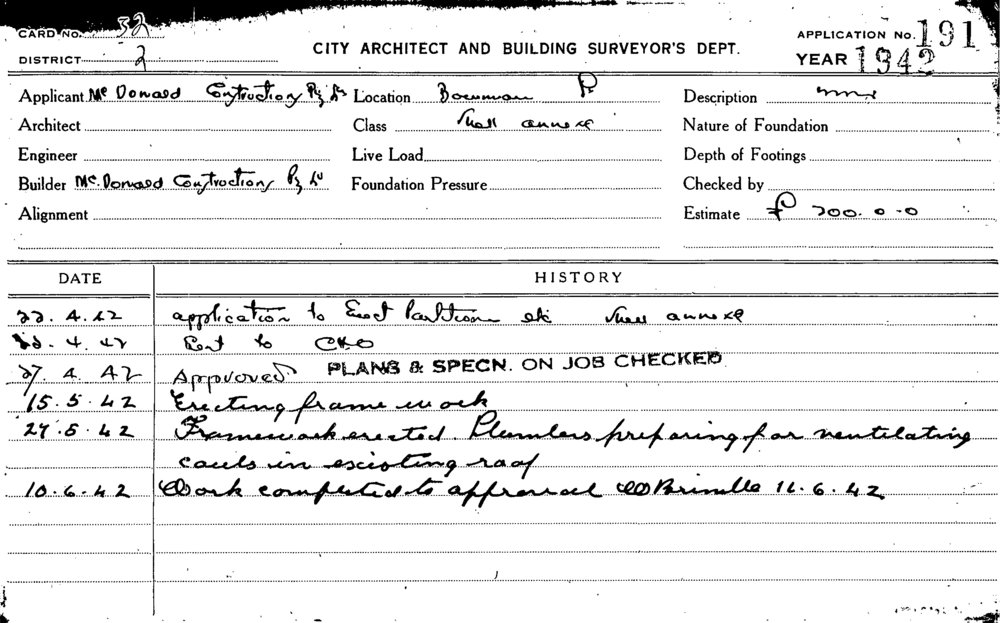 CARD No. 32
DISTRICT 2
CITY ARCHITECT AND BUILDING SURVEYOR'S DEPT.
APPLICATION No. 191
YEAR 1942
Applicant Mc Donald Construction Pty Ld Location Bowman Description
Architect Class Shell annexe Nature of Foundation
Engineer Live Load Depth of Footings
Builder Mc. Donald Construction Pty Ld Foundation Pressure Checked by
Alignment Estimate £ 200.0-0
DATE HISTORY
22.4.42 application to Erect Partitions etc Shell annexe
22.4.42 Sent to
27.4.42 Approved PLANS & SPECN. ON JOB CHECKED
15.5.42 Erecting frame work
27.5.42 Framework erected. Plumbers preparing for ventilating
cowls in existing roof
10.6.42 Work completed to approval 16.6.42